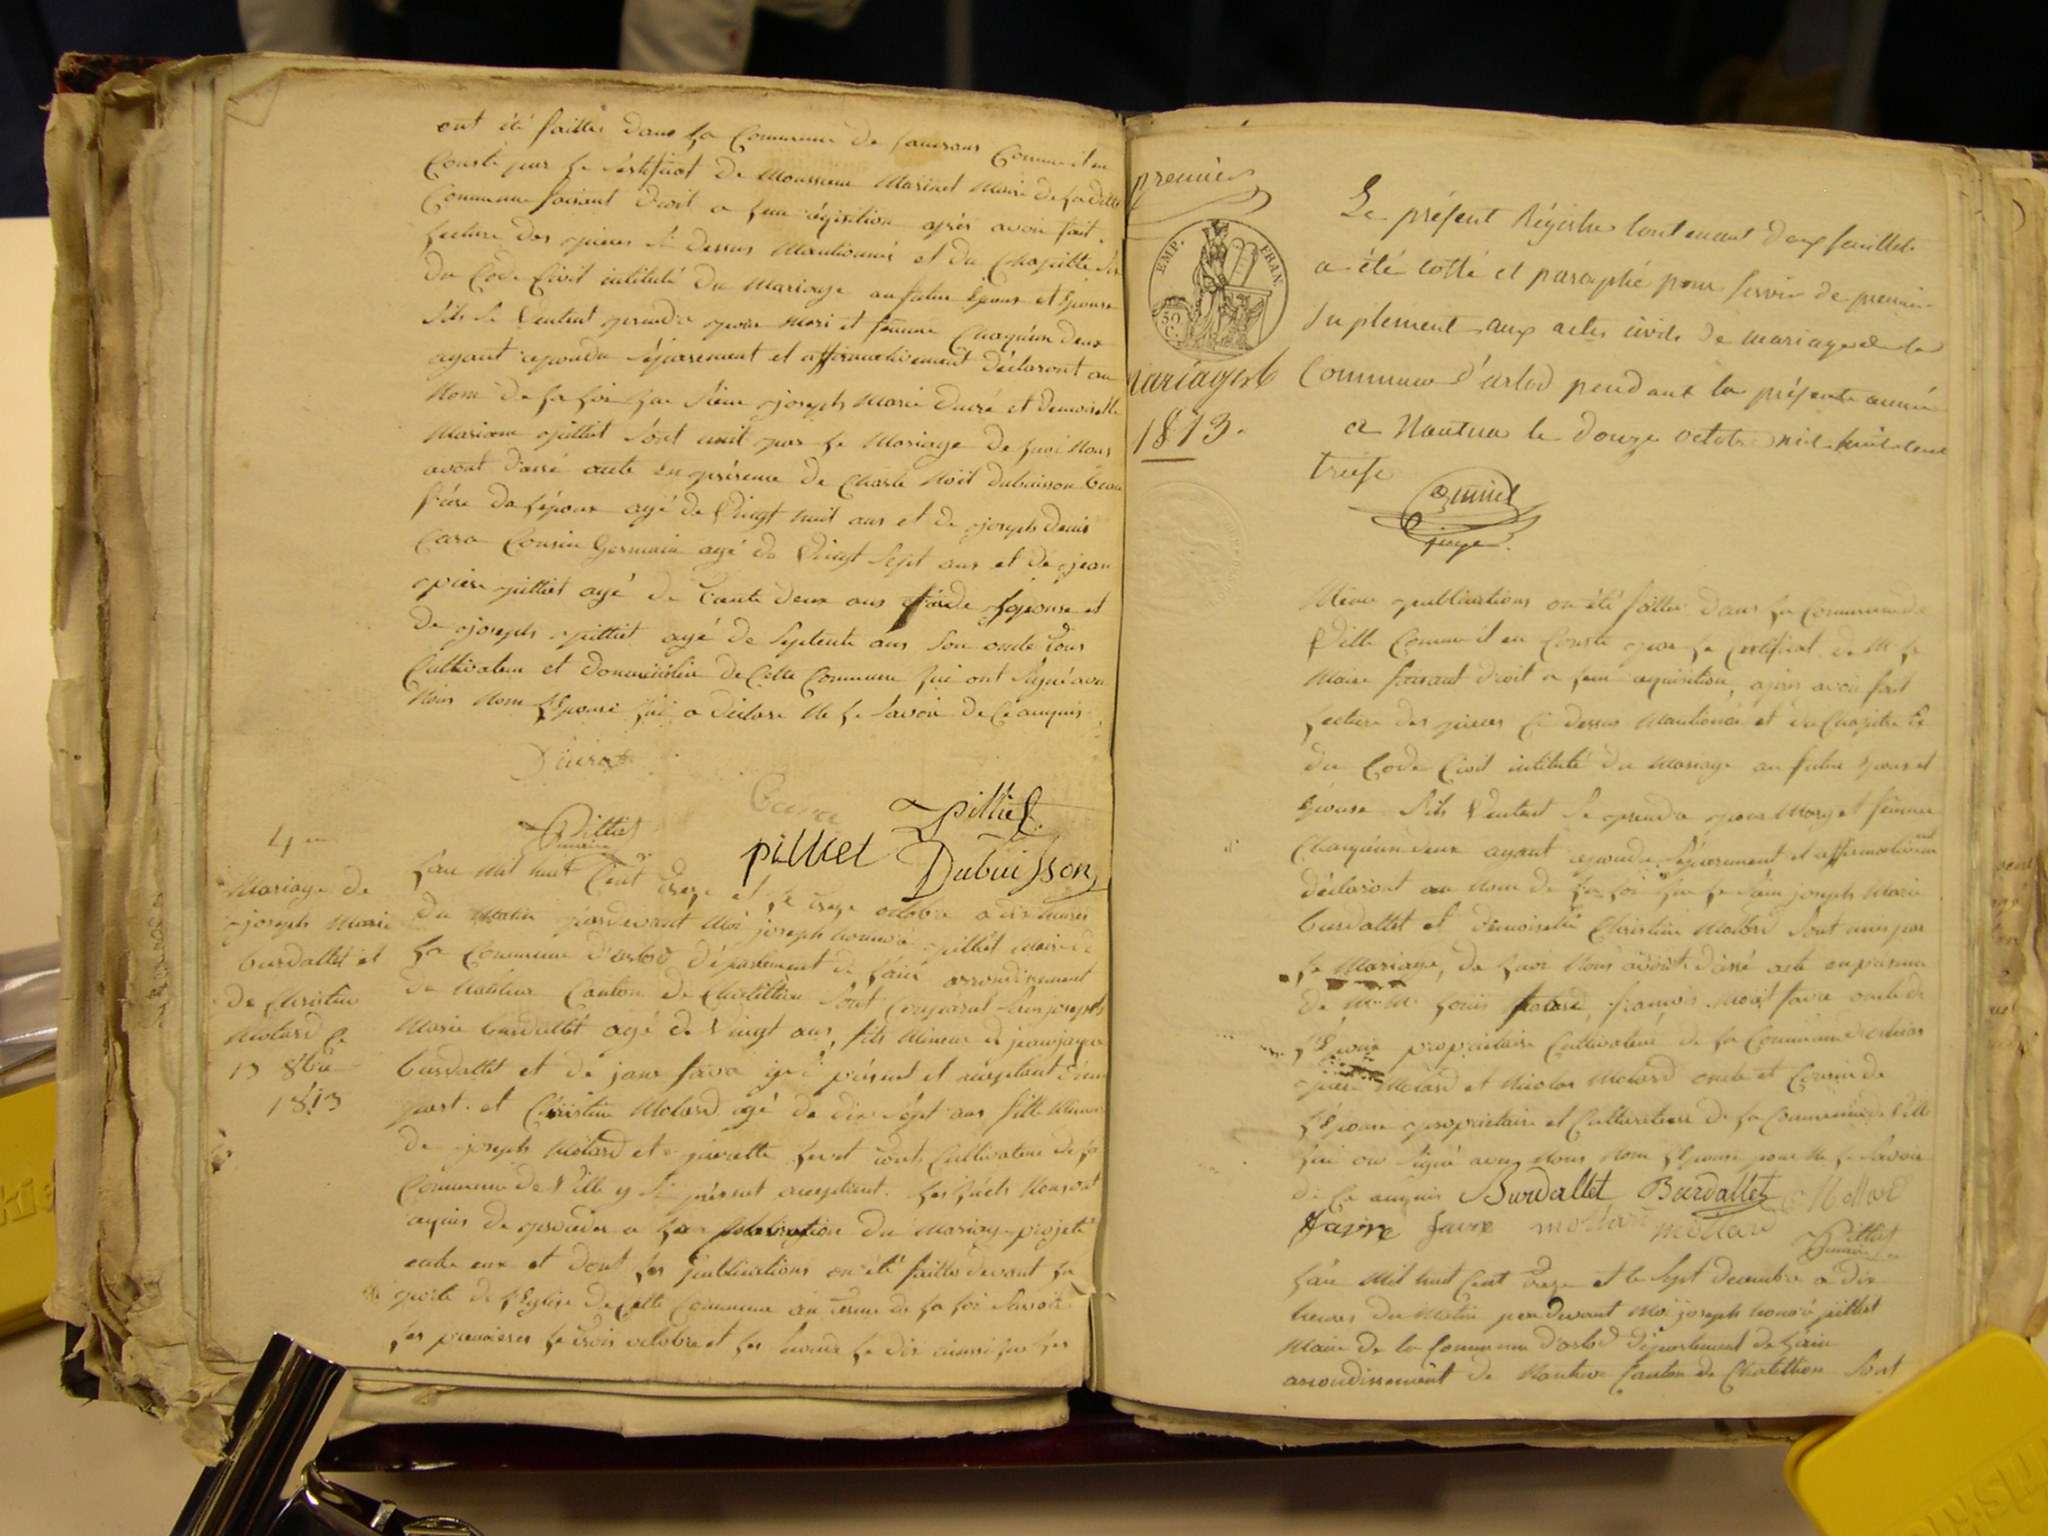 ont été faittes dans la Commune de Comme il en
Conste par le Sertificat de Monsieur Marinet Maire de la ditte
Commune faisant droit a leur réquisition après avoir fait
lecture des pieces Si dessus Mantionnés et du Chapittre Six
du Code Civil intitulé du Mariage au futur Epoux et Epouse
S'ils Se Veulent prendre pour Mari et femme Chaqu'un deux
ayant repondu Séparement et affirmativement déclaront au
Nom de la loi que Sieur joseph Marie ducré et demoiselle
Marianne pilliet Sont unit par le Mariage de quoi Nous
avont dressé acte En présence de Charle Noël dubuisson beau
frère de l'époux agé de Vingt huit ans et de joseph denis
Cara Cousin Germain agé de Vingt Sept ans et de jean
pierre pilliet agé de Trente deux ans frère de l'épouse et
de joseph pilliet agé de Septente ans Son oncle tous
Cultivateur et domicilié de Cette Commune qui ont Signé avec
Nous Non l'Epouse qui a déclaré Ne le Savoir de Ce anquis
Ducret
Cara pilliet
Pilliet
maire
pilliet Dubuisson
4 me
Mariage de
joseph Marie
burdallet et
de Christine
Molard Le
13 8bre
1813
L'an Mil huit Cent treze et le treze octobre a dix heures
du Matin pardevant Moi joseph honoré pilliet maire de
la Commune d'arlod département de l'ain arrondissement
de Nantua Canton de Chatillon Sont Comparut Sieur joseph
Marie burdallet agé de Vingt ans, fils Mineur de jean jaque
burdallet et de jane favre ici présent et aceptant d'une
part et Christine Molard agé de dix Sept ans fille Mineure
de joseph Molard et pierrette tout Cultivateur de la
Commune de Ville y Si présent aceptant. Lesquels Nous ont
requis de proceder a la Célébration du Mariage projeté
entre eux et dont les publications on été faittes devant la
porte de l'Eglise de Cette Commune au terme de la loi Savoir
les premieres le trois octobre et les Secondes le dix aussi que les
première
EMP. FRAN.
50 C.
mariages
1813.
Le présent Régistre Contenant deux feuillets
a été cotté et paraphé pour servir de premier
Suplement aux actes civils de mariage de la
Commune d'arlod pendant la présente année
a Nantua le douze octobre mil huit cent
treise
juge
Même publications on été faittes dans la Commune de
Ville Comme il en Conste par le Certificat de Mr le
Maire faisant droit a leur requisition, apres avoir fait
lecture des pieces Ci dessus Mantionnés et du Chapitre Six
du Code Civil intitulé du Mariage au futur Epoux et
Epouse S'ils Veulent Se prendre pour Mary et femme
Chaqu'un deux ayant repondu Séparement et affirmativement
déclaront au Nom de la loi que le Sieur joseph Marie
burdallet et demoiselle Christine Molard Sont unis par
le Mariage, de quoi Nous avont dressé acte en présence
de M.M. Louis favre, françois Noël favre oncle de
l'Epoux propriétaire Cultivateur de la Commune d'arlod
pierre Molard et Nicolas Molard oncle et Cousin de
l'Epouse propriétaire et Cultivateur de la Commune de Ville
qui on Signé avec Nous Non l'Epouse pour Ne le Savoir
de Ce anquis Burdallet Burdallet Mollard
Favre favre mollard mollard
Pilliet
maire
L'an Mil huit Cent treze et le Sept decembre a dix
heures du Matin par devant Moi joseph honoré pilliet
Maire de la Commune d'arlod département de l'ain
arrondissement de Nantua Canton de Chatillon Sont